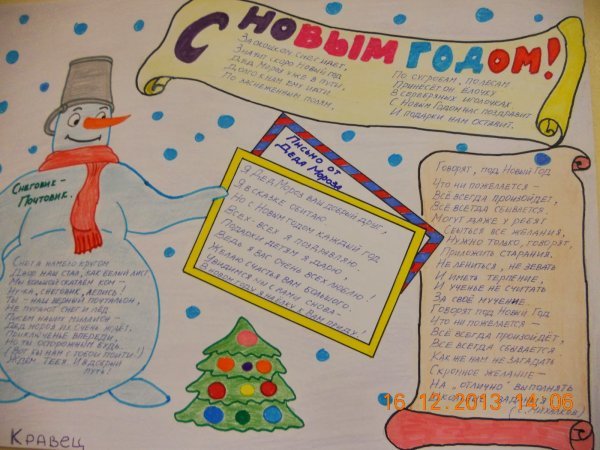 С НОВЫМ ГОДОМ!
За окошком снег идёт,
Значит скоро Новый год.
Дед Мороз уже в пути,
Долго к нам ему идти
По заснеженным полям,
По сугробам, по лесам.
Принесёт он ёлочку
В серебряных иголочках.
С Новым Годом нас поздравит
И подарки нам оставит.
Письмо от
Деда Мороза
Я Дед Мороз ваш добрый друг,
Я в сказке обитаю.
Но с Новым годом каждый год
Всех-всех я поздравляю.
Подарки детям я дарю!
Ведь я вас очень всех люблю!
Желаю счастья вам большого
Увидимся мы с вами снова-
В новом году я на ёлку к вам приду!
Снеговик-
Почтовик.
Снега намело кругом
Двор наш стал, как белый лист
Мы большой скатаем ком -
Ну-ка, снеговик, делись!
Ты - наш верный почтальон,
Не пугают снег и лёд
Писем наших миллион -
Дед Мороз их очень ждёт.
Приключенье впереди,
Но ты осторожным будь.
(Вот бы нам с тобой пойти!)
Ждём тебя. И в добрый
путь!
Говорят, под Новый Год
Что ни пожелается -
Всё всегда произойдет,
Всё всегда сбывается.
Могут даже у ребят
Сбыться все желания,
Нужно только, говорят,
Приложить старания.
Не лениться, не зевать
И иметь терпение,
И ученье не считать
За своё мучение.
Говорят под Новый Год
Что ни пожелается -
Всё всегда произойдёт,
Все всегда сбывается
Как же нам не загадать
Скромное желание -
На „отлично" выполнять
Школьные задания
(С. Михалков)
16.12.2013 14:05
Кравец